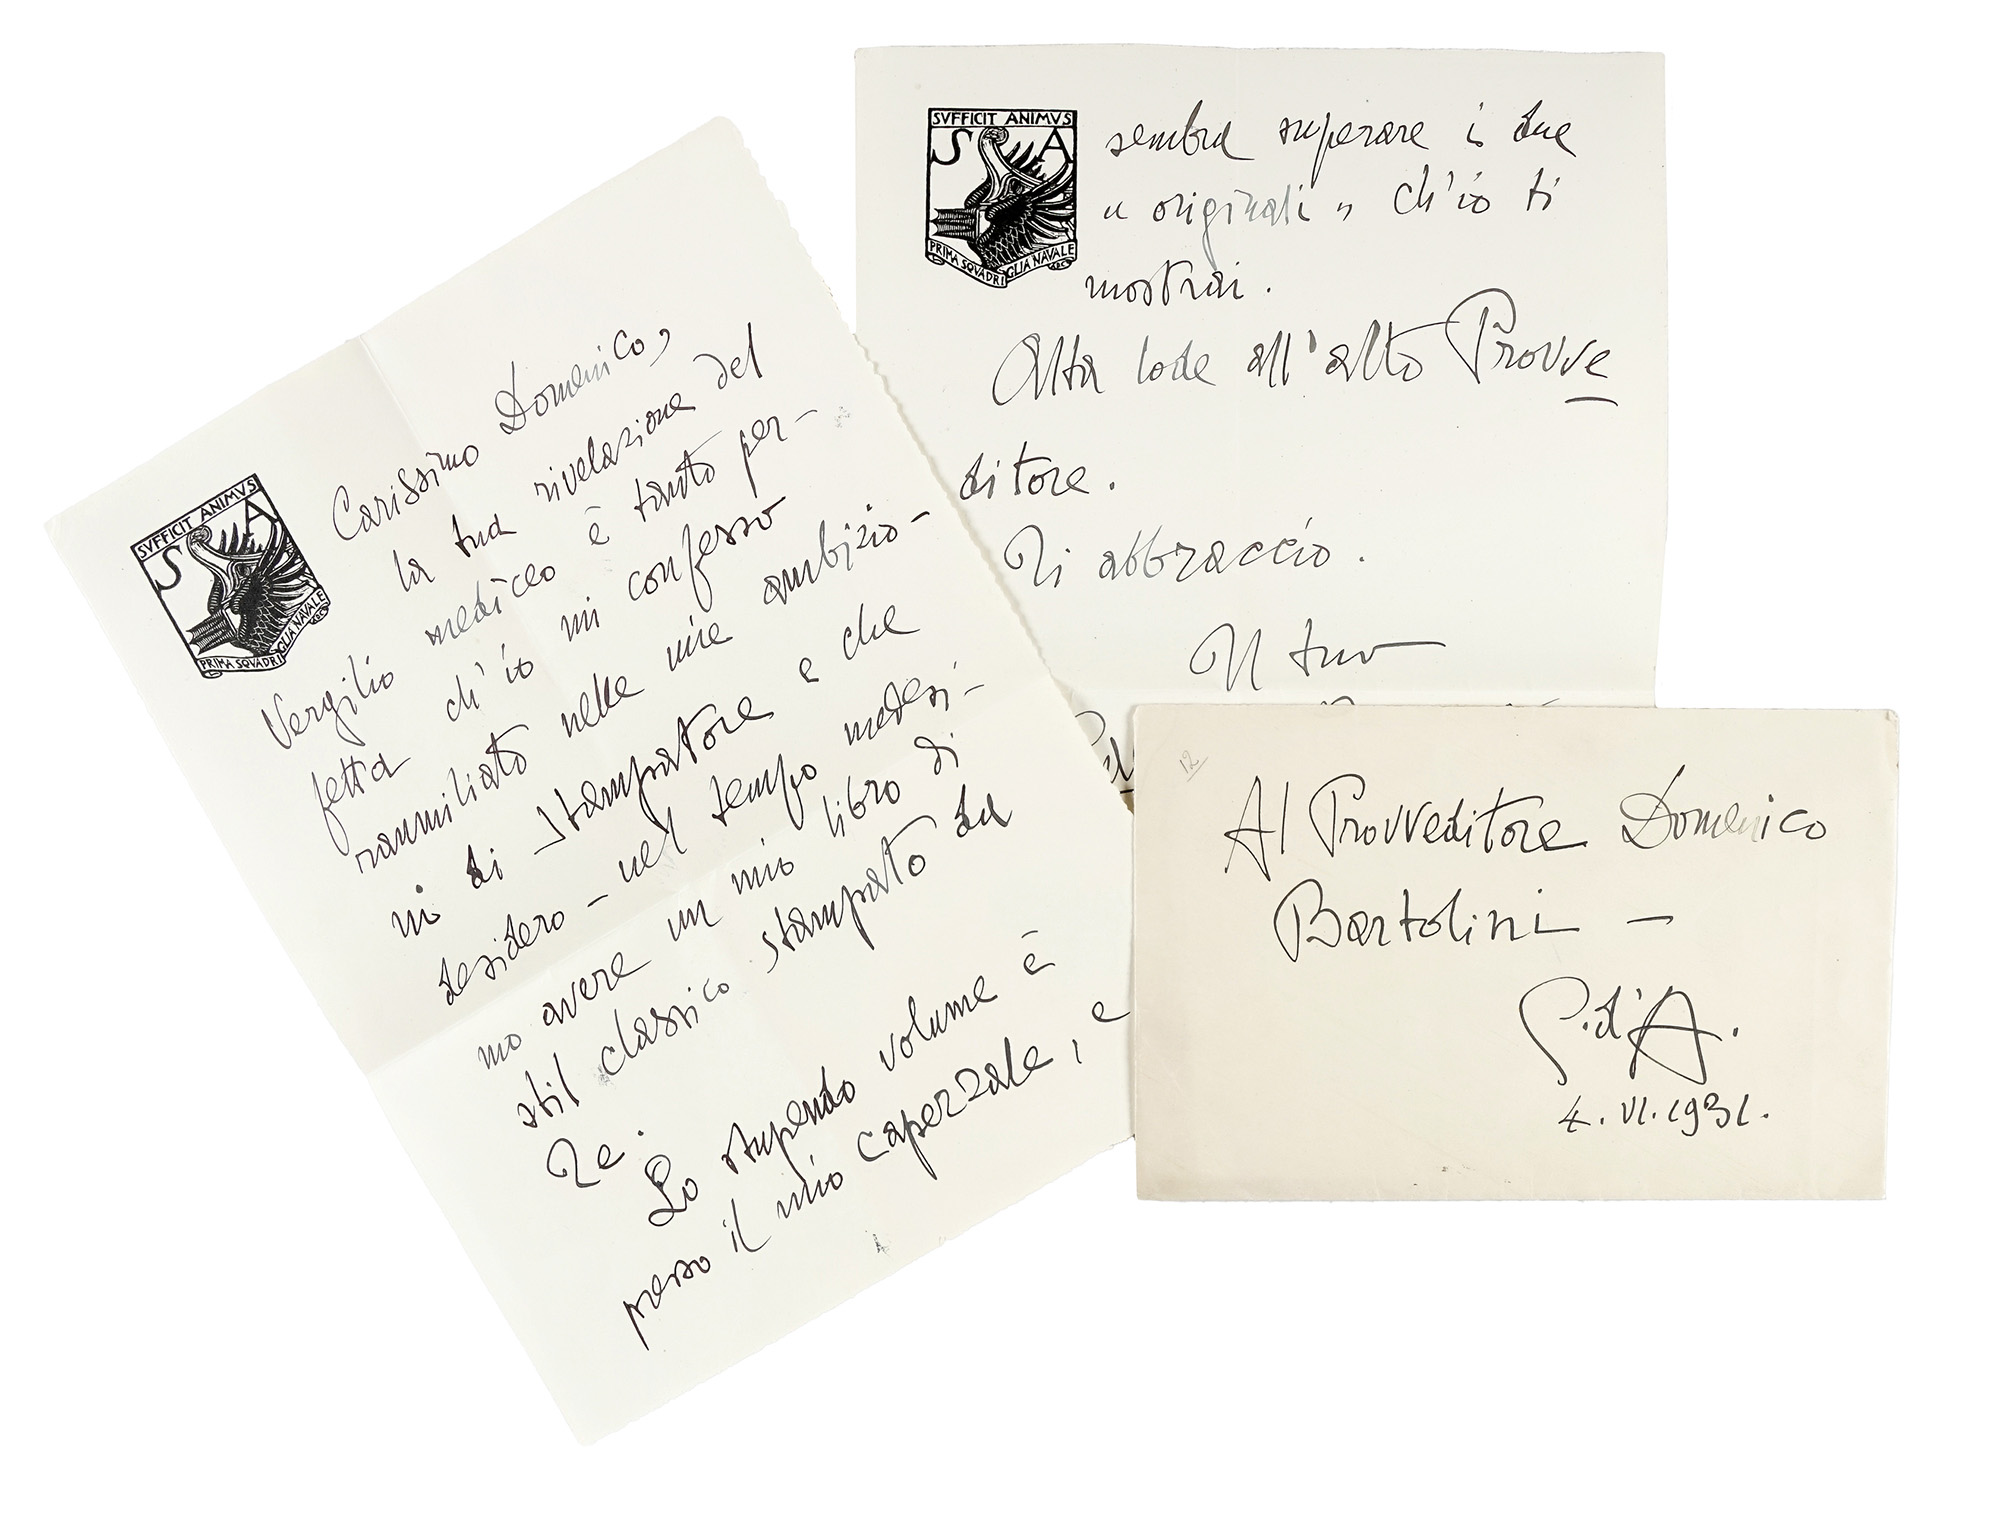 SVFFICIT ANIMVS
S A
PRIMA SQVADRIGLIA NAVALE
Carissimo Domenico,
la tua rivelazione del
Vergilio mediceo è tanto per-
fetta ch'io mi confesso
raumiliato nelle mie ambizio-
ni di stampatore e che
desidero - nel tempo medesi-
mo avere un mio libro di
stil classico stampato da
Te.
Lo stupendo volume è
presso il mio capezzale, e
SVFFICIT ANIMVS
S A
PRIMA SQVADRIGLIA NAVALE
sembra superare i due
"originali" ch'io ti
mostrai.
Alta lode all'alto Provve
ditore.
Ti abbraccio.
Il tuo
12
Al Provveditore Domenico
Bartolini -
G. d'A.
4. VI. 1931.